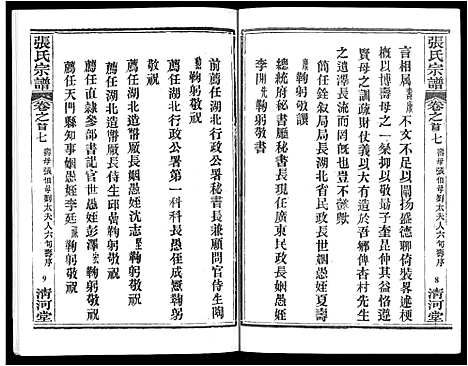 張氏宗譜
卷之首七
壽母張伯母劉太夫人六旬壽序
8
清河堂
言相屬壽康不文不足以闡揚盛德聊倚裝畧述梗
概以博壽母之一粲抑以敬勗子奎昆仲其益恪修
賢母之訓疏財仗義以大有造於吾鄉俾杏村先生
之遺澤長流而四達也豈不懿歟
簡任銓敘局局長湖北省民政長世姻愚姪夏壽康鞠躬敬撰
總統府秘書廳秘書長現任廣東民政長姻愚姪
李開侁鞠躬敬書
前薦任湖北行政公署秘書長兼顧問官侍生陶
鞠躬敬祝
薦任湖北行政公署第一科科長愚姪成憲鞠躬
敬祝
薦任湖北造幣廠長姻愚姪沈志鞠躬敬祝
薦任湖北造幣廠長侍生邱鞠躬敬祝
薦任直隸參部書記官世姻愚姪彭澤鞠躬敬祝
薦任天門縣知事姻愚姪李廷鞠躬敬祝
張氏宗譜
卷之首七
壽母張伯母劉太夫人六旬壽序
9
清河堂